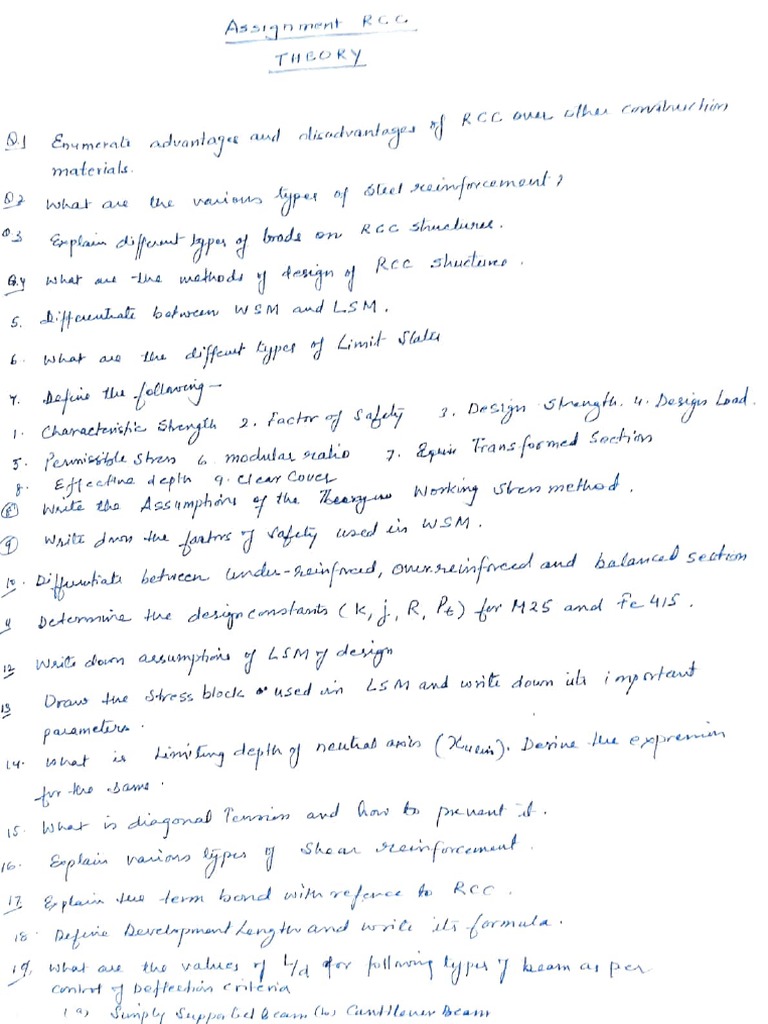 Assignment RCC
THEORY
Q.1 Enumerate advantages and disadvantages of RCC over other construction
materials.
Q.2 What are the various types of steel reinforcement?
Q3 Explain different types of loads on RCC structures.
Q.4 What are the methods of design of RCC structures.
5. Differentiate between WSM and LSM.
6. What are the different types of Limit States
7. Define the following –
1. Characteristic Strength 2. Factor of Safety 3. Design Strength. 4. Design Load.
5. Permissible Stress 6. modular ratio 7. Equiv Transformed Section
8. Effective depth 9. Clear Cover
8 Write the Assumptions of the Working Stress method.
9 Write down the factors of safety used in WSM.
10. Differentiate between under-reinforced, over reinforced and balanced section
11 Determine the design constants (k, j, R, Pt) for M25 and Fe 415.
12 Write down assumptions of LSM of design
13 Draw the stress block used in LSM and write down its important
parameters.
14. What is Limiting depth of neutral axis (Xulim). Derive the expression
for the same.
15. What is diagonal Tension and how to prevent it.
16. Explain various types of Shear reinforcement.
17 Explain the term bond with refence to RCC.
18. Define Development Length and write its formula.
19. What are the values of L/d for following types of beam as per
control of Deflection criteria
(a) Simply Supported Beam (b) Cantilever Beam